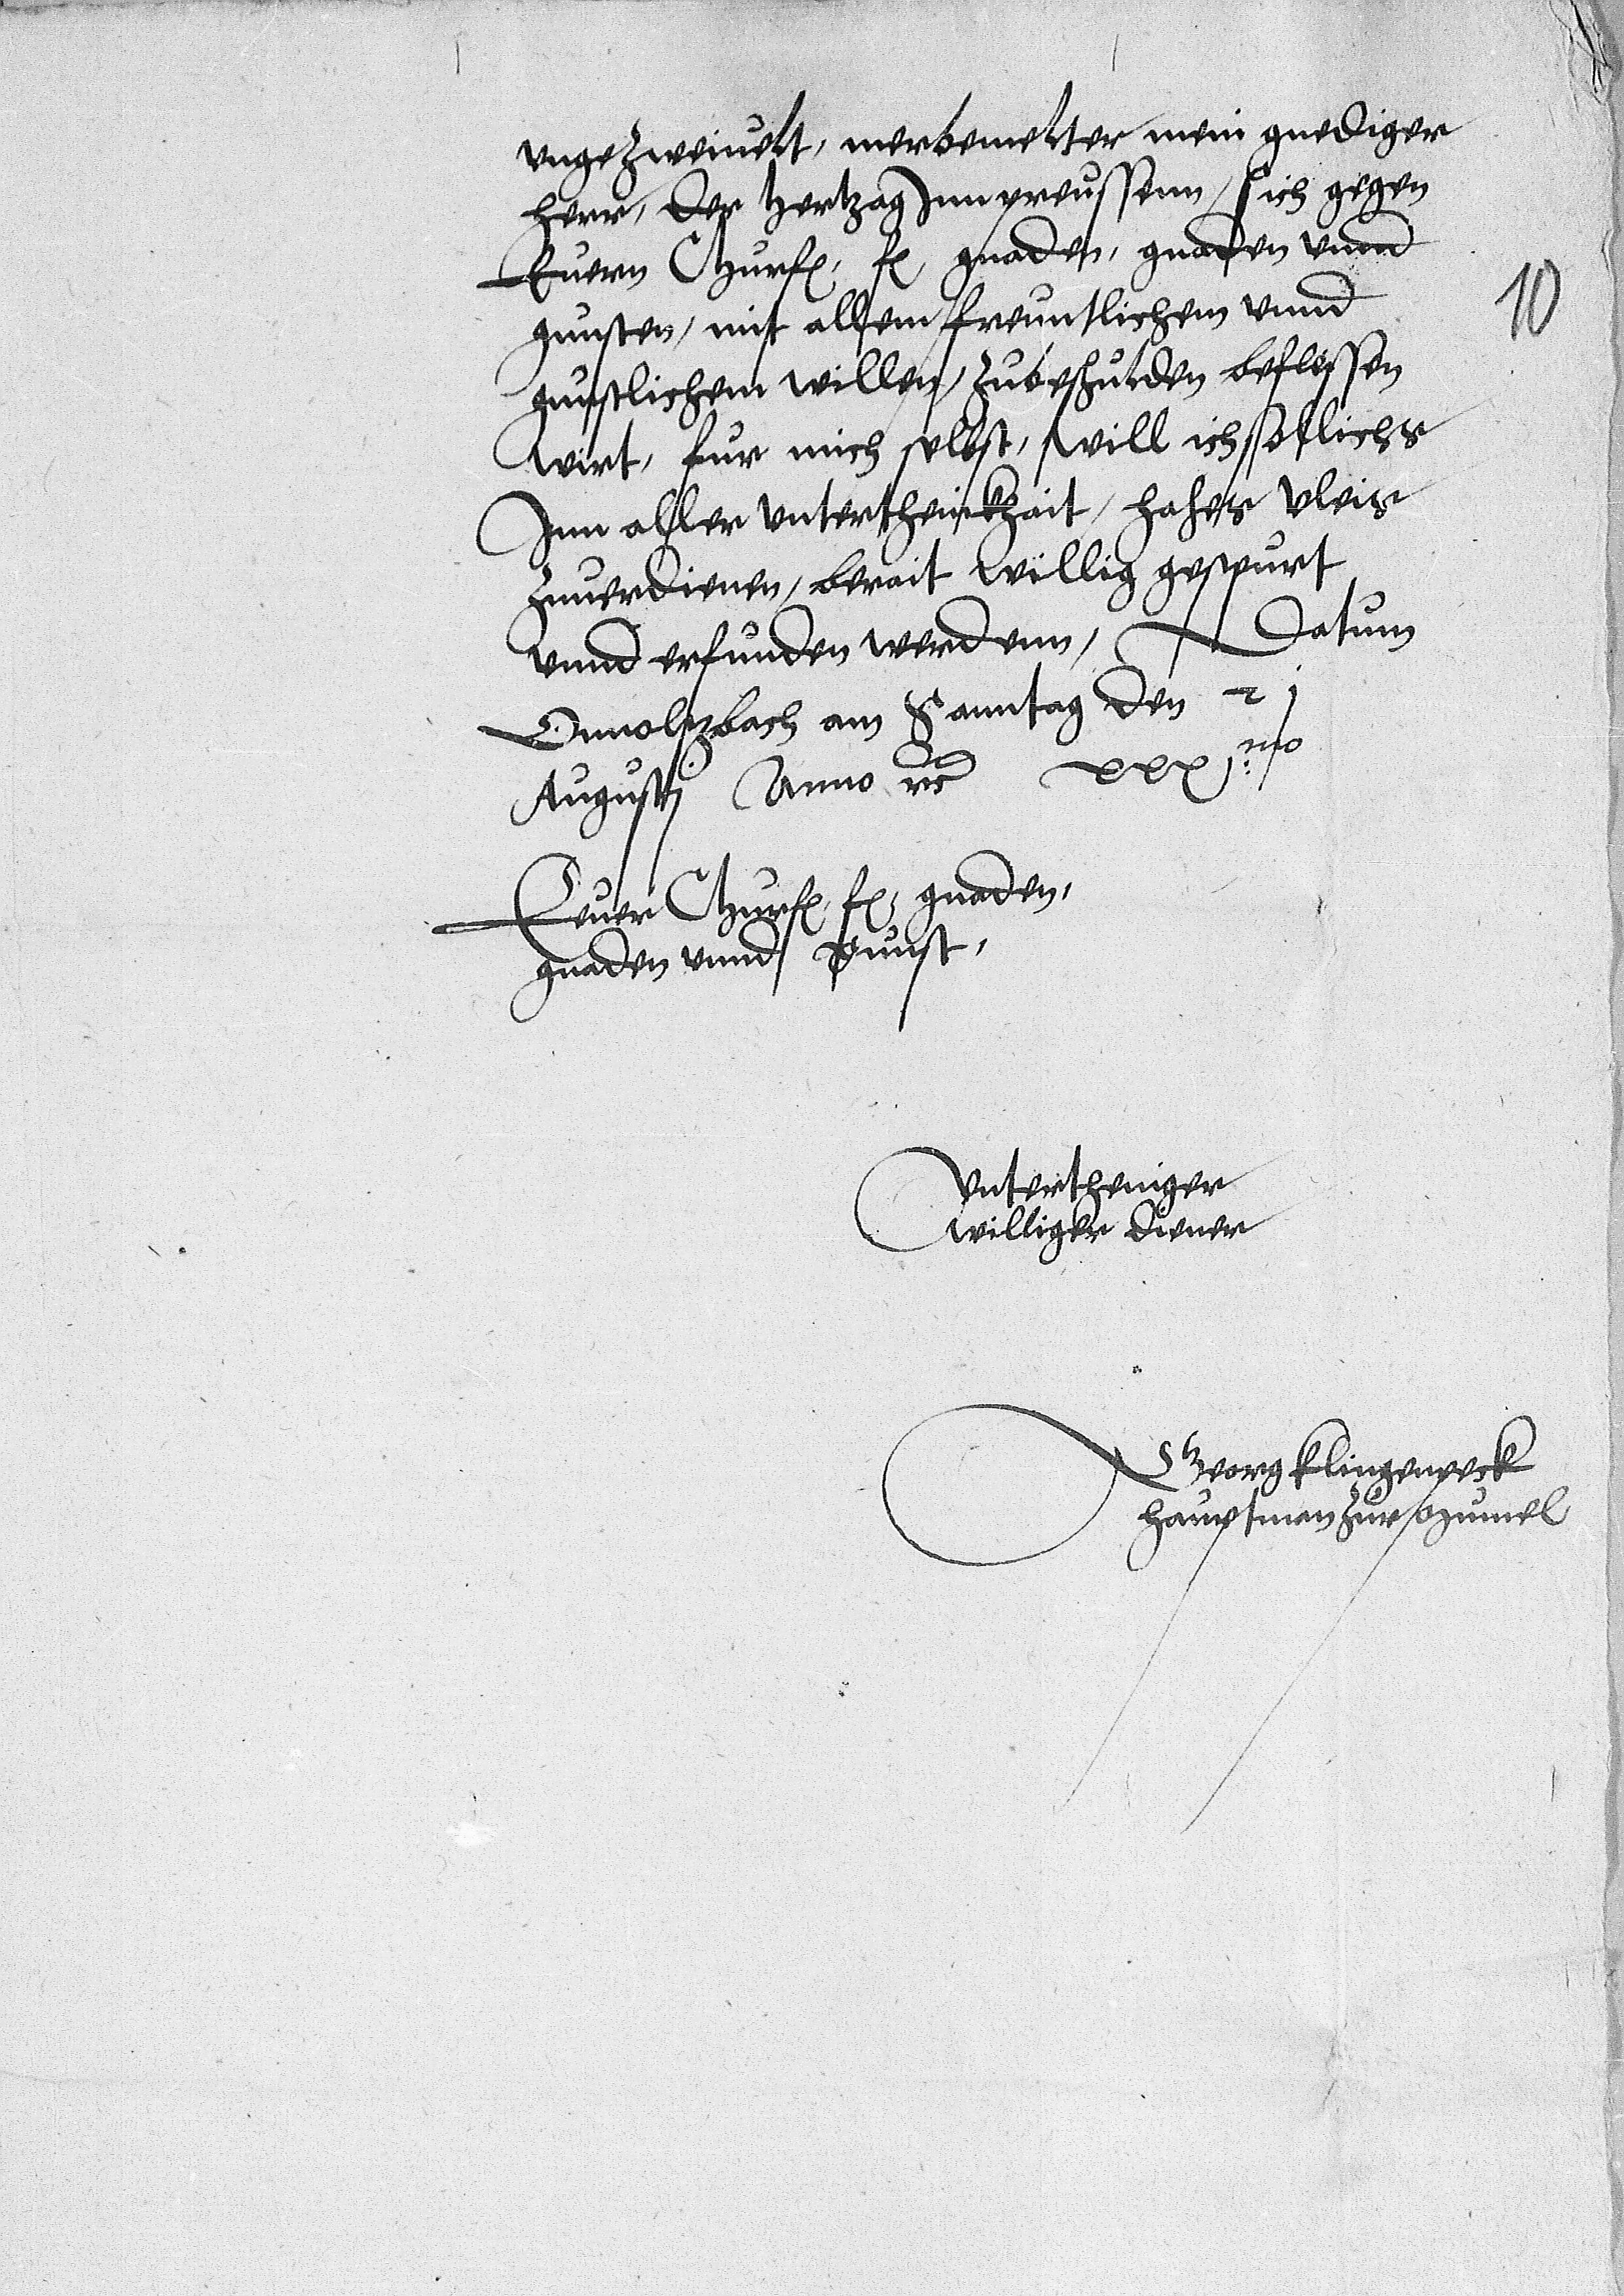 vngezweiuelt, merbemelter mein gnediger
herr, der Hertzog Inn preussenn, sich gegen
Euern Churf. f. gnaden, gnaden vnnd
gunsten, mit allem freuntlichem vnnd
gunstlichem willen, zubeschulden beflissen
wirt, fur mich selbst, will ich solichs
Inn aller vntertheinikhait, hohes vleis
zuuerdienen, berait willig gespurt
vnnd erfunden werdenn, Datum
Onnoltzbach am Sonntag den 21
Augustj Anno rc xxxj mo
10
Euer Churf. f. gnaden,
gnaden vnnd gunst,
Vntertheniger
williger diener
Georg Klingenpeck
hauptman zur